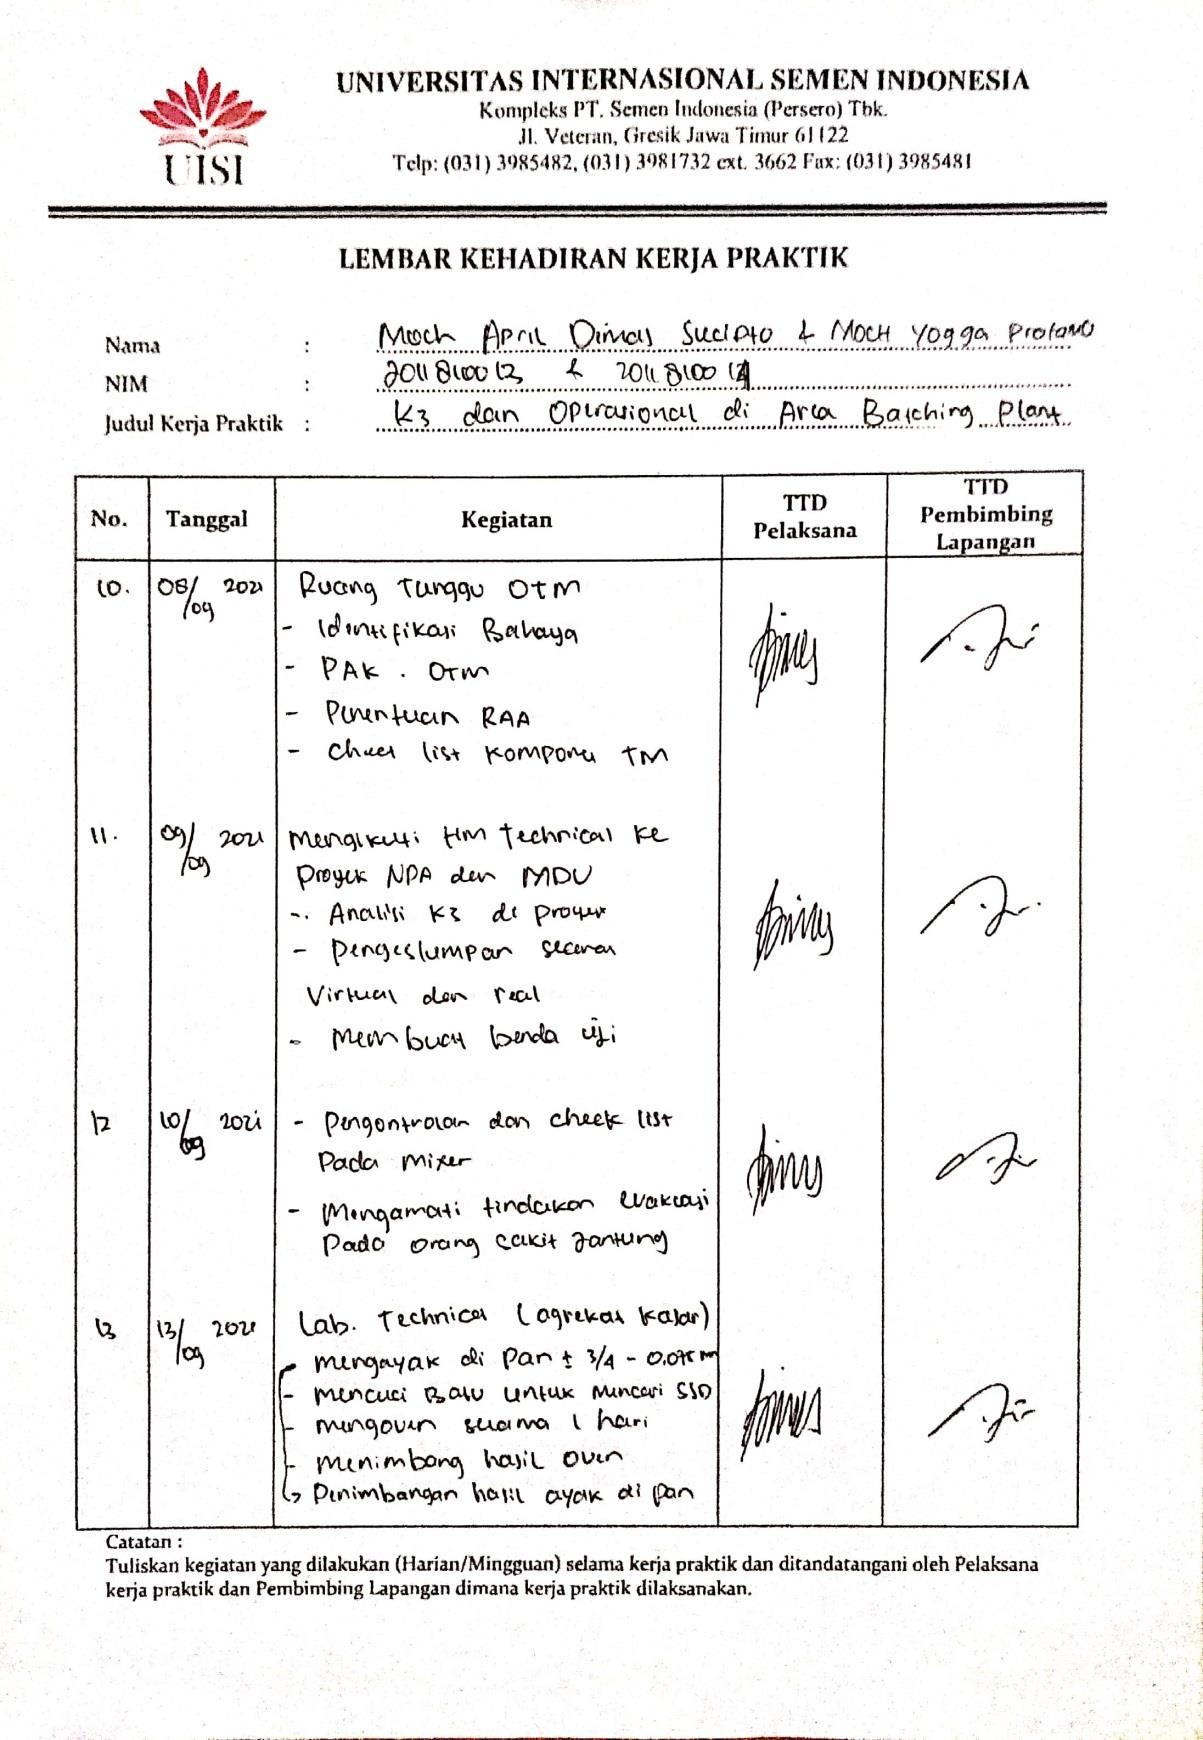 UNIVERSITAS INTERNASIONAL SEMEN INDONESIA
Kompleks PT. Semen Indonesia (Persero) Tbk.
Jl. Veteran, Gresik Jawa Timur 61122
Telp: (031) 3985482, (031) 3981732 ext. 3662 Fax: (031) 3985481
UISI
LEMBAR KEHADIRAN KERJA PRAKTIK
Nama : Moch April Dimas Sucipto & Moch Yogga Pratama
NIM : 2011810013 & 2011810014
Judul Kerja Praktik : K3 dan Operasional di Area Batching Plant
No. Tanggal Kegiatan TTD Pelaksana TTD Pembimbing Lapangan
10. 08/09 2021 Ruang Tunggu OTM
- Identifikasi Bahaya
- PAK . OTM
- Penentuan RAA
- Check list Komponen TM
11. 09/09 2021 Mengikuti tim Technical ke
Proyek NPA dan MDU
-. Analisi K3 di proyek
- Pengeslumpan secara
Virtual dan real
- Membuat benda uji
12 10/09 2021 - Pengontrolan dan check list
Pada mixer
- Mengamati tindakan evakuasi
Pada orang sakit Jantung
13 13/09 2021 Lab. Technical (agrekat kasar)
- mengayak di pan ± 3/4 - 0.075 m
- mencuci Batu untuk mencari SSD
- mengoven selama 1 hari
- menimbang hasil oven
Penimbangan hasil ayak di pan
Catatan :
Tuliskan kegiatan yang dilakukan (Harian/Mingguan) selama kerja praktik dan ditandatangani oleh Pelaksana
kerja praktik dan Pembimbing Lapangan dimana kerja praktik dilaksanakan.